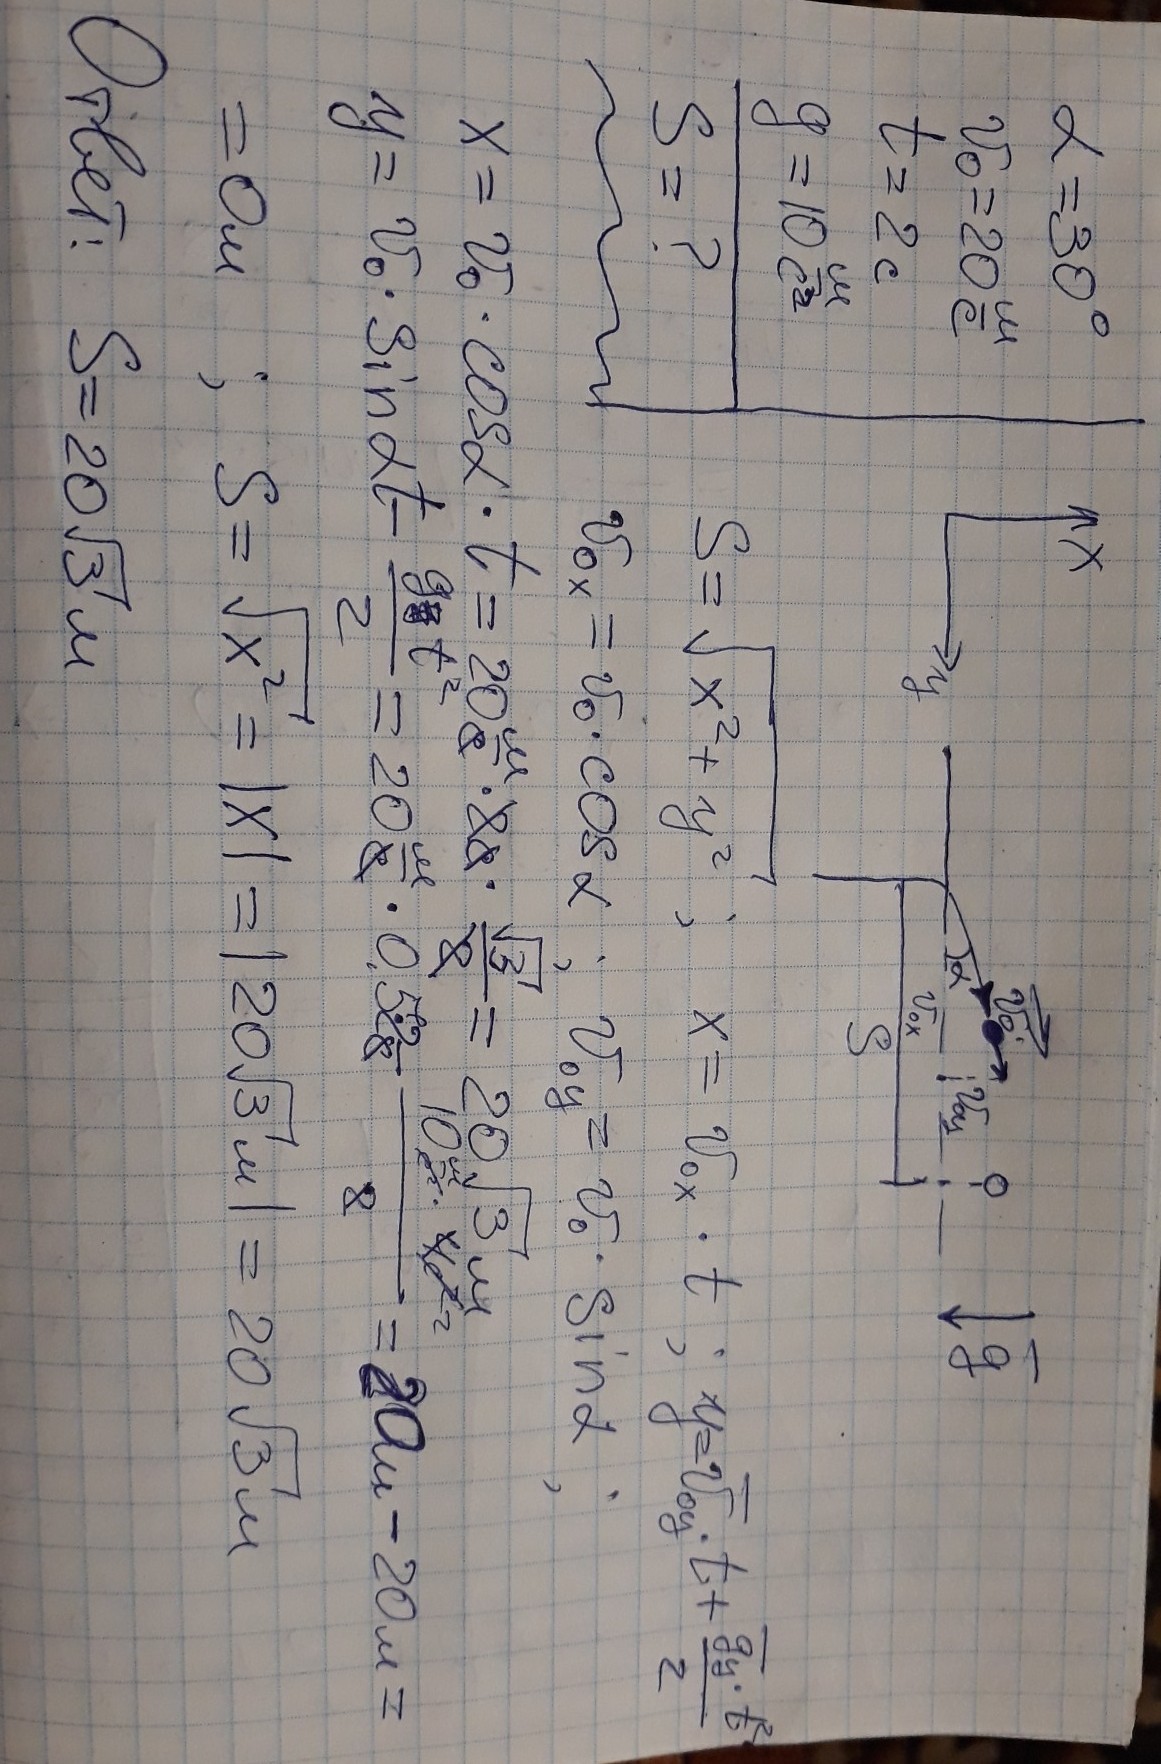 α = 30°
v₀ = 20 м/с
t = 2 с
g = 10 м/с²
S = ?
x
y
α
v₀
v₀ₓ
v₀y
S
g
S = √(x² + y²) ; x = v₀ₓ · t ; y = v₀y · t + gy · t²/2
v₀ₓ = v₀ · cos α ; v₀y = v₀ · sin α ;
x = v₀ · cos α · t = 20 м/с · 2с · √3/2 = 20√3 м
y = v₀ · sin α t − gt²/2 = 20 м/с · 0,5 · 2с − 10 м/с² · 4с²/2 = 20м − 20м =
= 0м ; S = √x² = |x| = |20√3 м| = 20√3 м
Ответ: S = 20√3 м